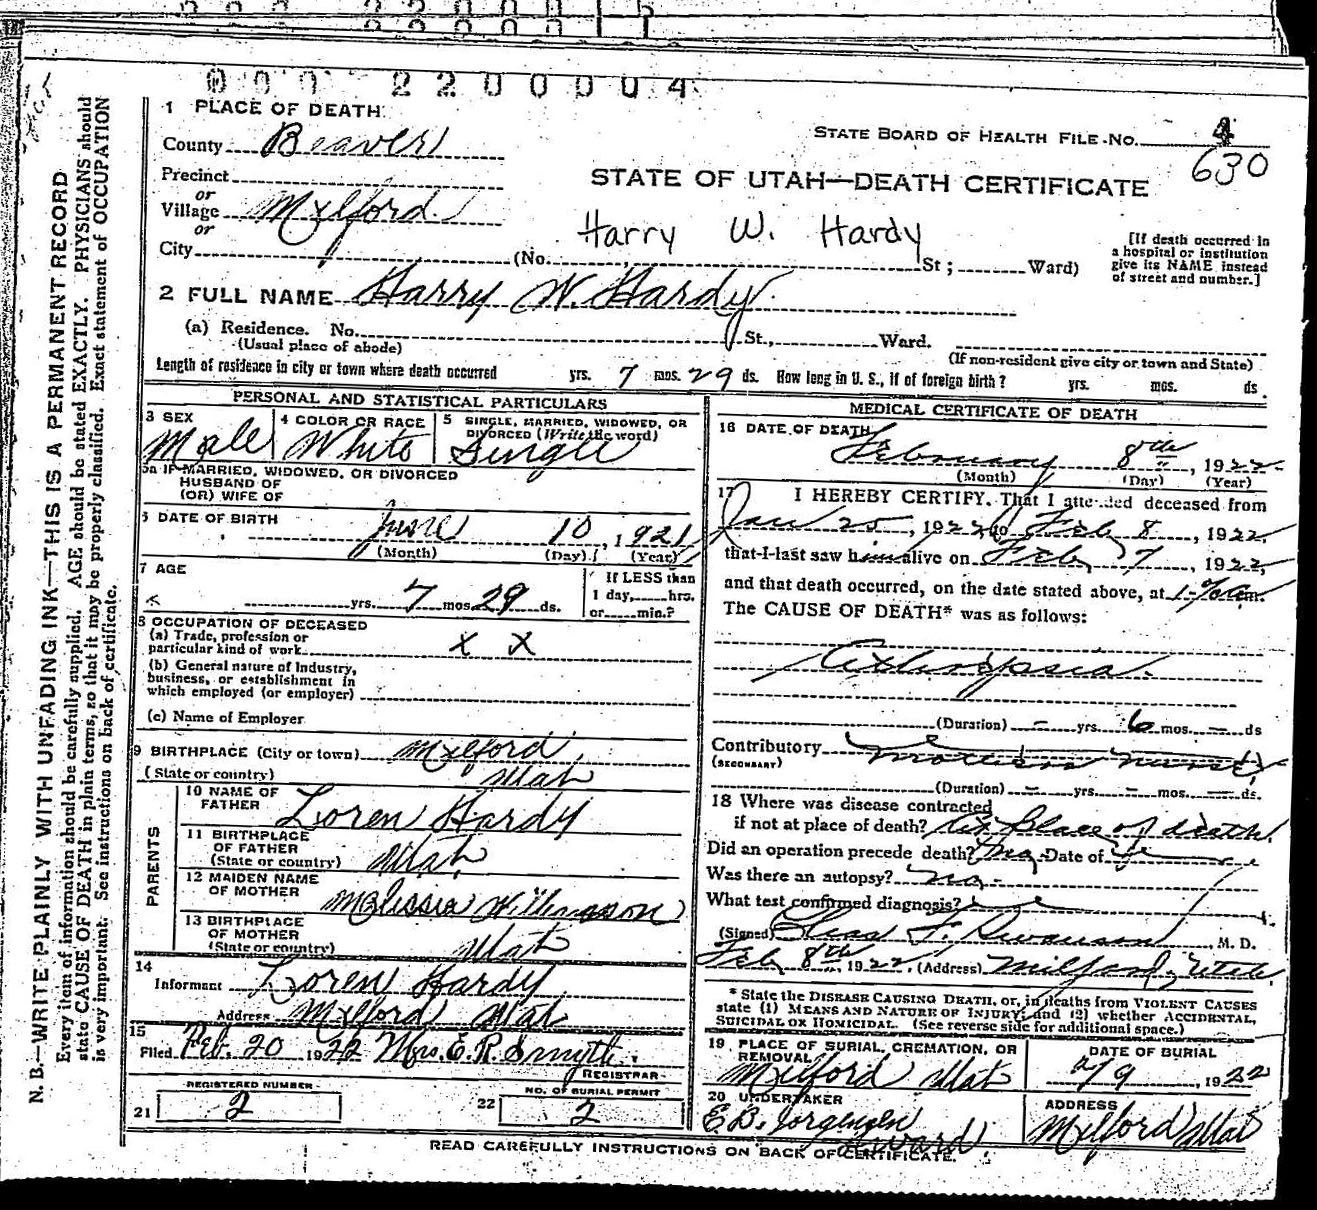 000 2200004
1 PLACE OF DEATH
STATE BOARD OF HEALTH FILE NO. 4
630
County Beaver
STATE OF UTAH—DEATH CERTIFICATE
Precinct
or
Village Milford
or
Harry W. Hardy
City (No. St; Ward)
[If death occurred in
a hospital or institution
give its NAME instead
of street and number.]
2 FULL NAME Harry W. Hardy
(a) Residence. No. St., Ward.
(Usual place of abode)
(If non-resident give city or town and State)
Length of residence in city or town where death occurred yrs. 7 mos. 29 ds. How long in U. S., if of foreign birth? yrs. mos. ds.
PERSONAL AND STATISTICAL PARTICULARS
3 SEX
Male
4 COLOR OR RACE
White
5 SINGLE, MARRIED, WIDOWED, OR
DIVORCED (Write the word)
Single
5a IF MARRIED, WIDOWED, OR DIVORCED
HUSBAND OF
(OR) WIFE OF
6 DATE OF BIRTH June 10, 1921
(Month) (Day) (Year)
7 AGE
yrs. 7 mos. 29 ds.
If LESS than
1 day, hrs.
or min.?
8 OCCUPATION OF DECEASED
(a) Trade, profession or
particular kind of work x x
(b) General nature of Industry,
business, or establishment in
which employed (or employer)
(c) Name of Employer
9 BIRTHPLACE (City or town) Milford
(State or country) Utah
PARENTS
10 NAME OF
FATHER Loren Hardy
11 BIRTHPLACE
OF FATHER
(State or country) Utah
12 MAIDEN NAME
OF MOTHER Melissia
13 BIRTHPLACE
OF MOTHER
(State or country) Utah
14
Informant Loren Hardy
Address Milford Utah
15
Filed Feb. 20 1922 Mrs. E. R. Smyth.
REGISTRAR
REGISTERED NUMBER
21 2
NO. OF BURIAL PERMIT
22 2
MEDICAL CERTIFICATE OF DEATH
16 DATE OF DEATH
February 8th, 1922
(Month) (Day) (Year)
17 I HEREBY CERTIFY. That I attended deceased from
Jan 25, 1922 to Feb 8, 1922
that I last saw him alive on Feb 7, 1922,
and that death occurred, on the date stated above, at m.
The CAUSE OF DEATH* was as follows:
(Duration) - yrs. 6 mos. - ds
Contributory
(SECONDARY)
(Duration) - yrs. - mos. - ds.
18 Where was disease contracted
if not at place of death? At Place of death.
Did an operation precede death? No Date of
Was there an autopsy? No-
What test confirmed diagnosis?
(Signed) Chas F. Swanson, M. D.
Feb 8th, 1922, (Address) Milford, Utah
* State the DISEASE CAUSING DEATH, or, in deaths from VIOLENT CAUSES
state (1) MEANS AND NATURE OF INJURY; and (2) whether ACCIDENTAL,
SUICIDAL OR HOMICIDAL. (See reverse side for additional space.)
19 PLACE OF BURIAL, CREMATION, OR
REMOVAL
Milford Utah
DATE OF BURIAL
2/9, 1922
20 UNDERTAKER
E B. Jorgensen
ADDRESS
Milford Utah
READ CAREFULLY INSTRUCTIONS ON BACK OF CERTIFICATE.
N. B.—WRITE PLAINLY WITH UNFADING INK—THIS IS A PERMANENT RECORD
Every item of information should be carefully supplied. AGE should be stated EXACTLY. PHYSICIANS should
state CAUSE OF DEATH in plain terms, so that it may be properly classified. Exact statement of OCCUPATION
is very important. See instructions on back of certificate.